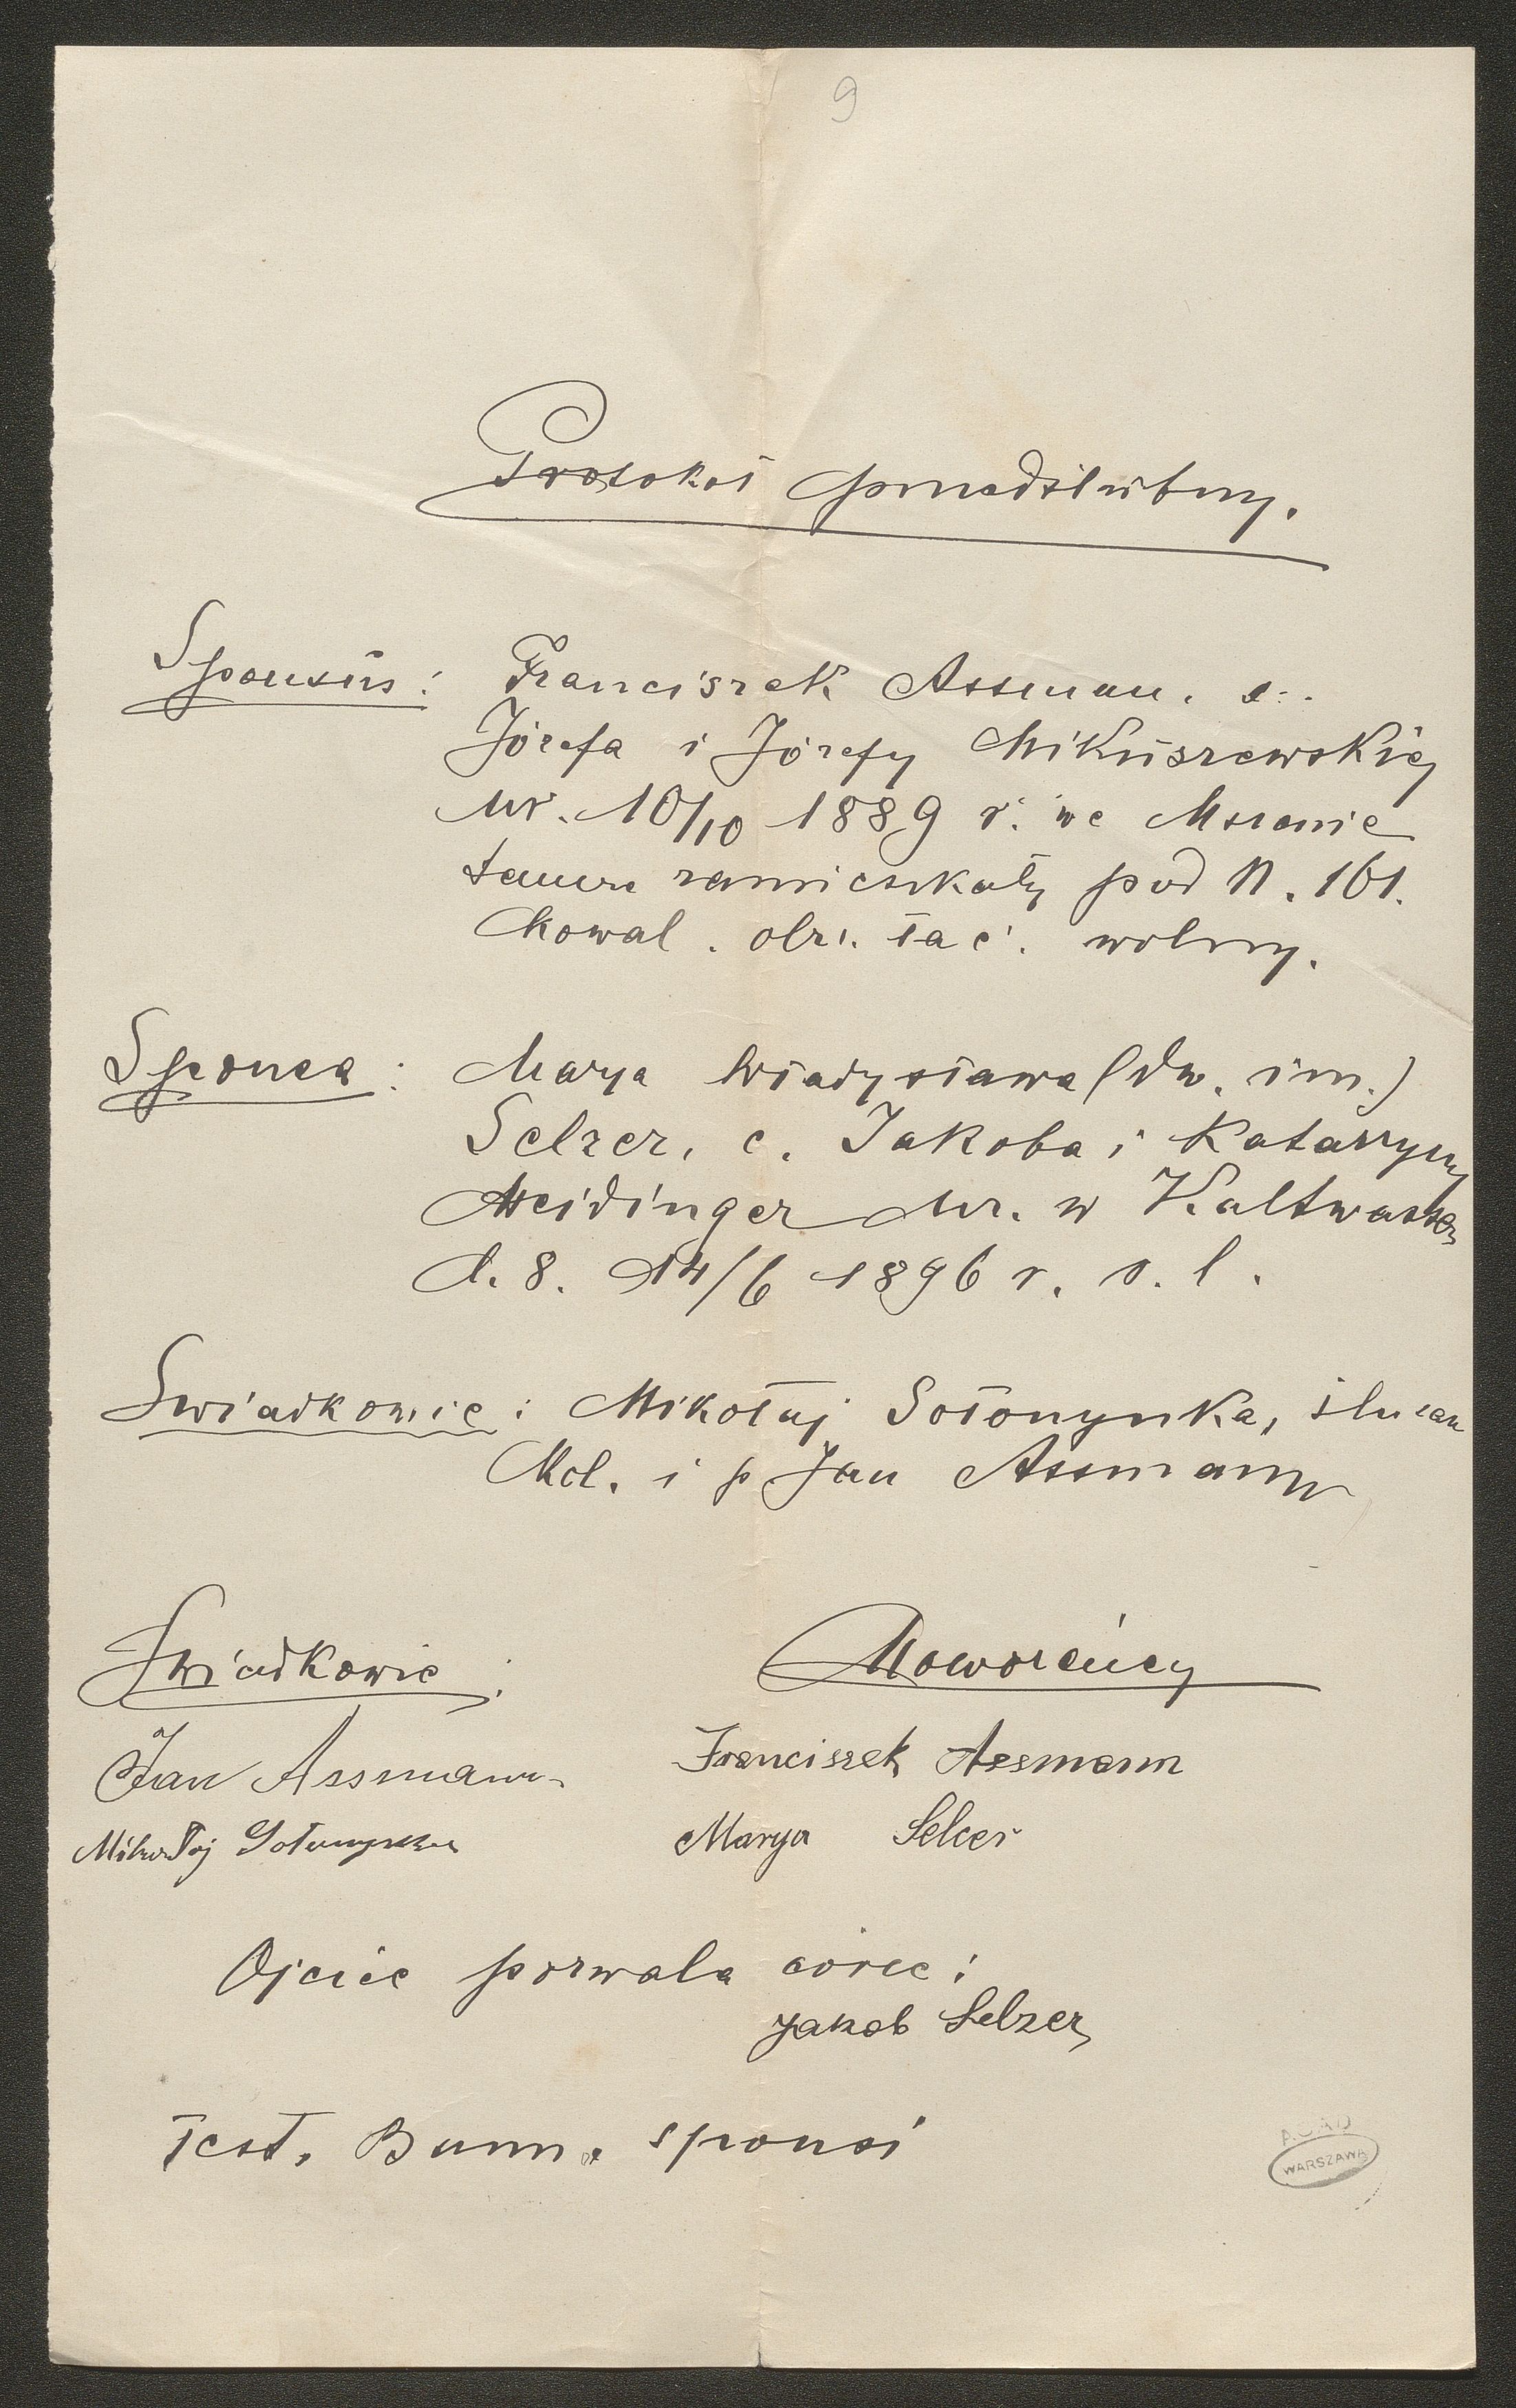 9
Protokoł przedślubny.
Sponsus: Franciszek Assman. s.
Józefa i Józefy Mikuszewskiej
ur. 10/10 1889 r. we Mszanie
tamże zamieszkały pod N. 161.
Kowal. obrz. łac. wolny.
Sponsa: Marya Władysława (dw. im.)
Selzer, c. Jakoba i Katarzyny
Weidinger ur. w Kaltwasser
d. 8. 14/6 1896 r. s. l.
Świadkowie: Mikołaj Sołonynka,
i p Jan Assmann
Świadkowie: Noworzeńcy
Jan Assmann Franciszek Assmann
Mikołaj Sołonynka Marya Selcer
Ojciec pozwala córce:
Jakob Selzer
Test. Bann. sponsi
A.G.A.D
WARSZAWA